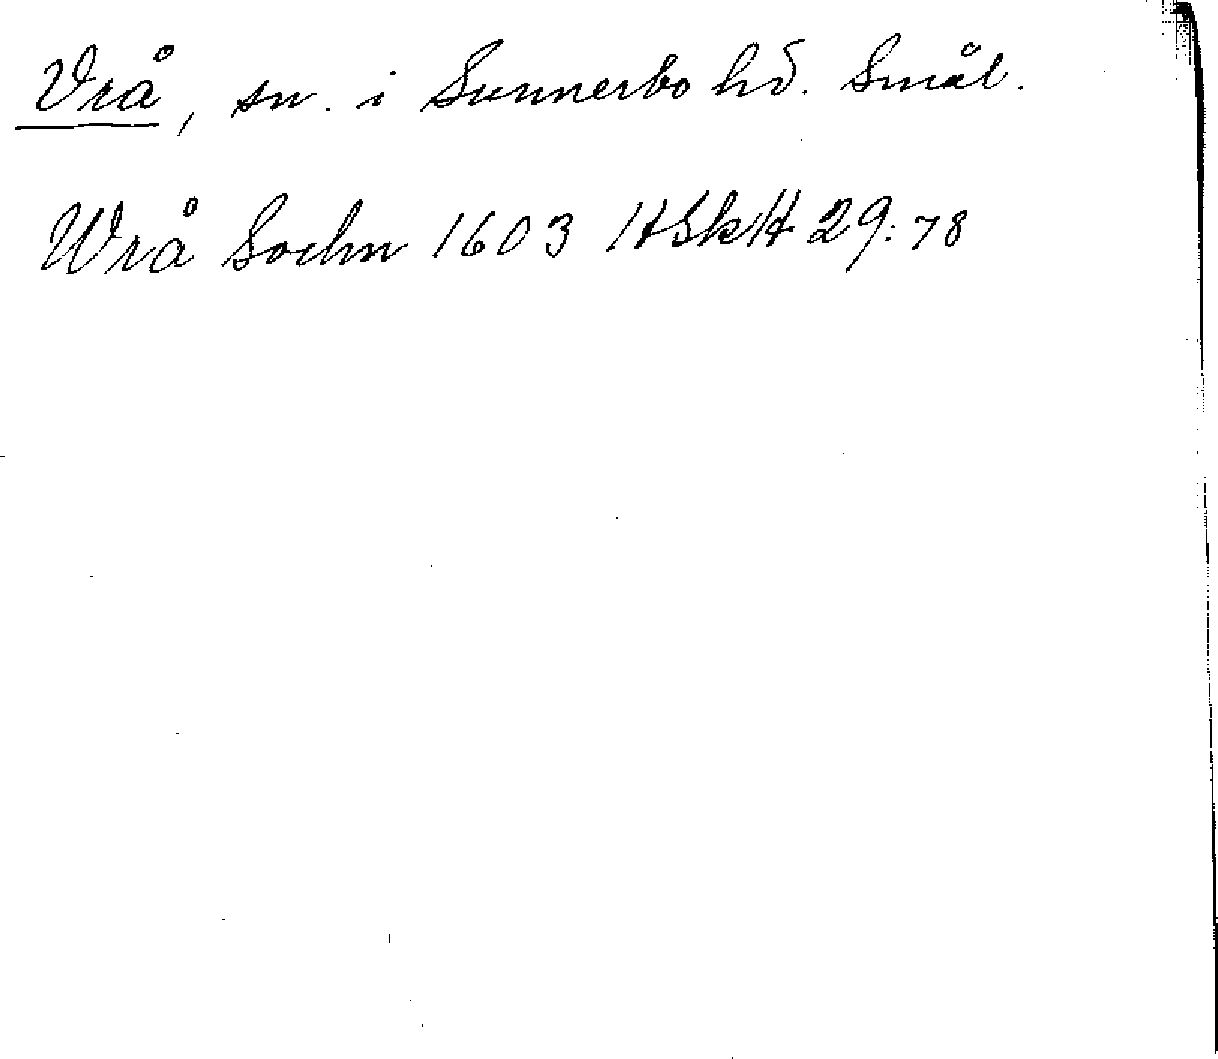 Vrå, sn. i Sunnerbo hd. Smål.
Wrå Sochn 1603 HSkH 29:78